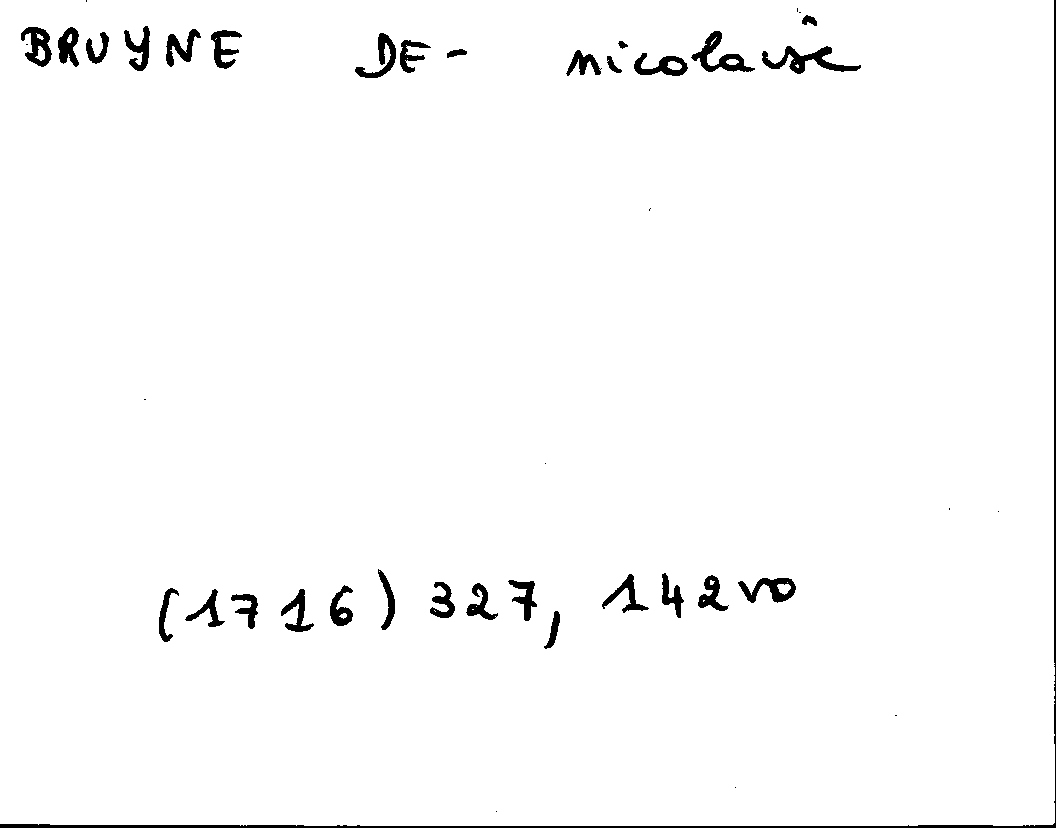 BRUYNE DE- nicolaisê
(1716) 327, 142vo